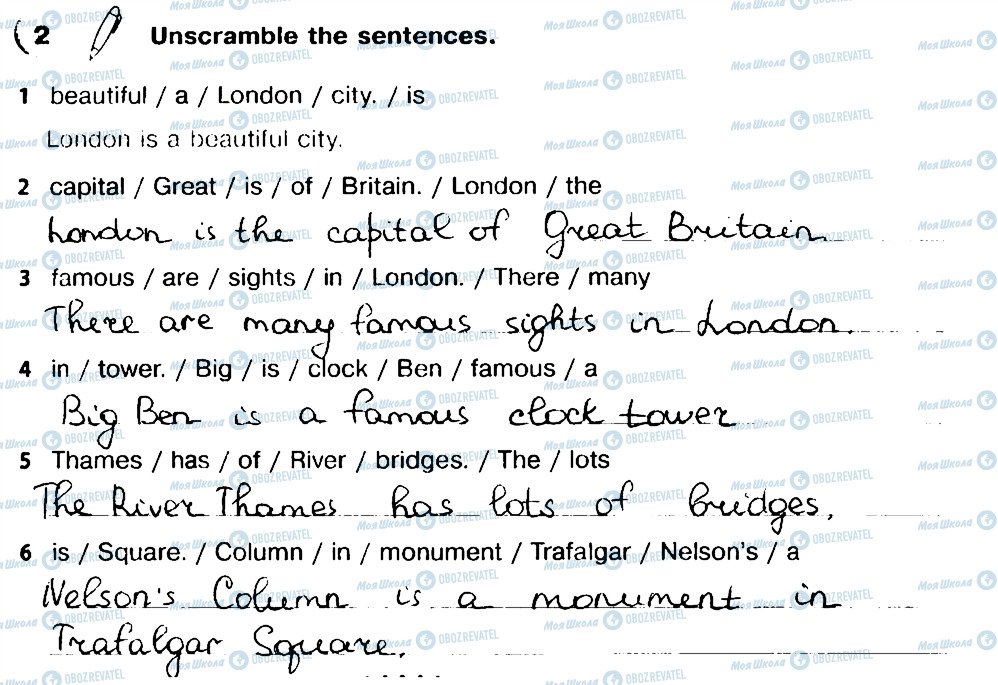 2 Unscramble the sentences.
1 beautiful / a / London / city. / is
London is a beautiful city.
2 capital / Great / is / of / Britain. / London / the
London is the capital of Great Britain.
3 famous / are / sights / in / London. / There / many
There are many famous sights in London.
4 in / tower. / Big / is / clock / Ben / famous / a
Big Ben is a famous clock tower
5 Thames / has / of / River / bridges. / The / lots
The River Thames has lots of bridges.
6 is / Square. / Column / in / monument / Trafalgar / Nelson's / a
Nelson's Column is a monument in
Trafalgar Square.